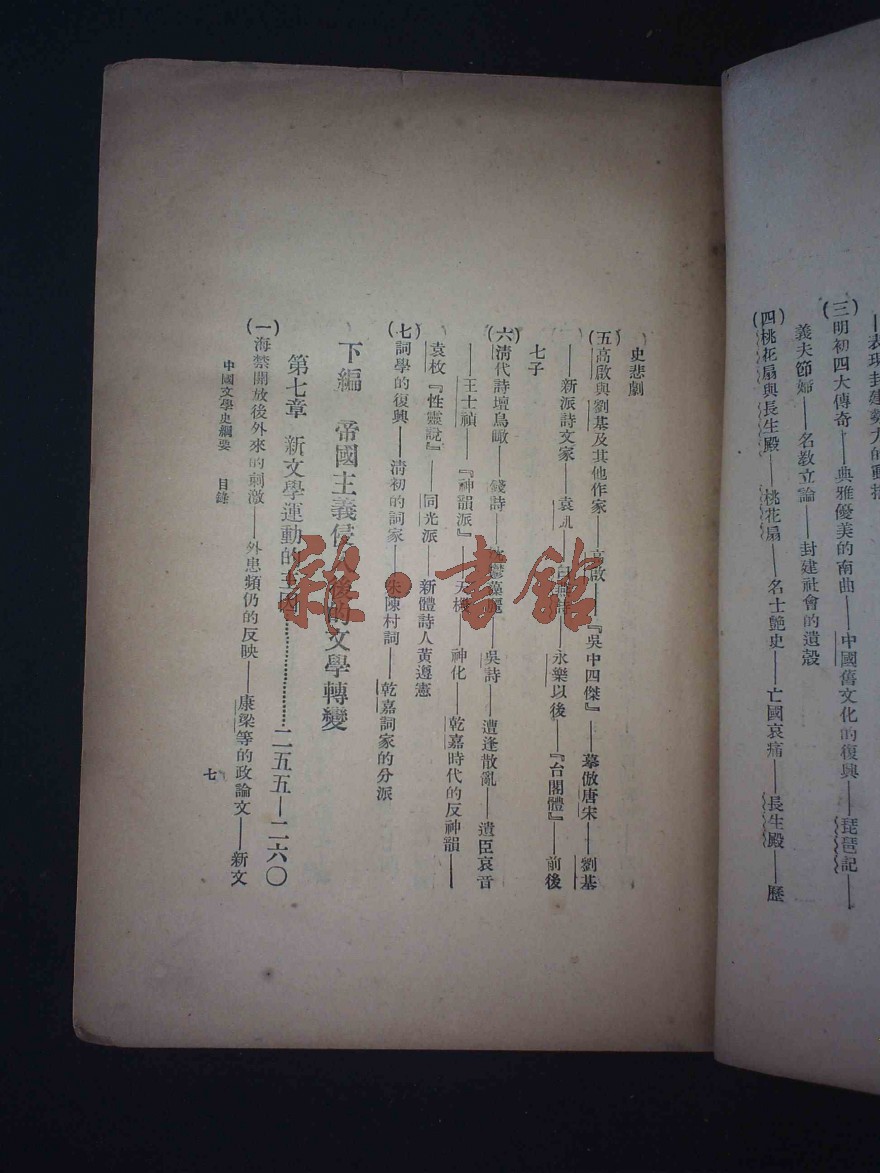 三 明初四大傳奇——典雅優美的南曲——中國舊文化的復興——琵琶記——
義夫節婦——名教立論——封建社會的遺殼
(四)桃花扇與長生殿——桃花扇——名士艷史——亡國哀痛——長生殿——歷
史悲劇
(五)高啟與劉基及其他作家——高啟——『吳中四傑』——摹倣唐宋——劉基
——新派詩文家——袁凱——永樂以後——『台閣體』——前後
七子
(六)清代詩壇鳥瞰——錢詩——吳詩——遭逢散亂——遺臣哀音
——王士禎——『神韻派』——天機——神化——乾嘉時代的反神韻——
袁枚『性靈說』——同光派——新體詩人黃遵憲
(七)詞學的復興——清初的詞家——朱陳村詞——乾嘉詞家的分派
下編 帝國主義侵入後的文學轉變
第七章 新文學運動的主因…………二五五—二六〇
(一)海禁開放後外來的刺激——外患頻仍的反映——康梁等的政論文——新文
中國文學史綱要 目錄 七
雜·書館